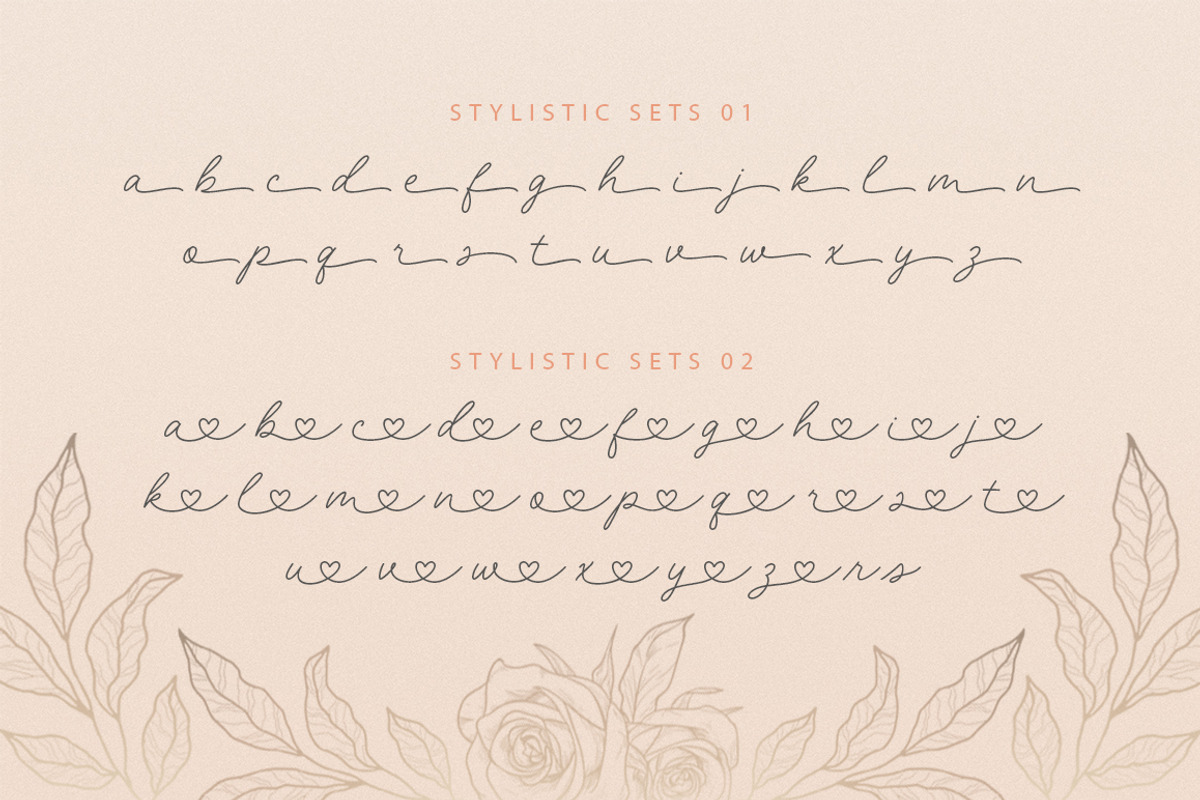 STYLISTIC SETS 01
a b c d e f g h i j k l m n
o p q r s t u v w x y z
STYLISTIC SETS 02
a♡ b♡ c♡ d♡ e♡ f♡ g♡ h♡ i♡ j♡
k♡ l♡ m♡ n♡ o♡ p♡ q♡ r♡ s♡ t♡
u♡ v♡ w♡ x♡ y♡ z♡ r s